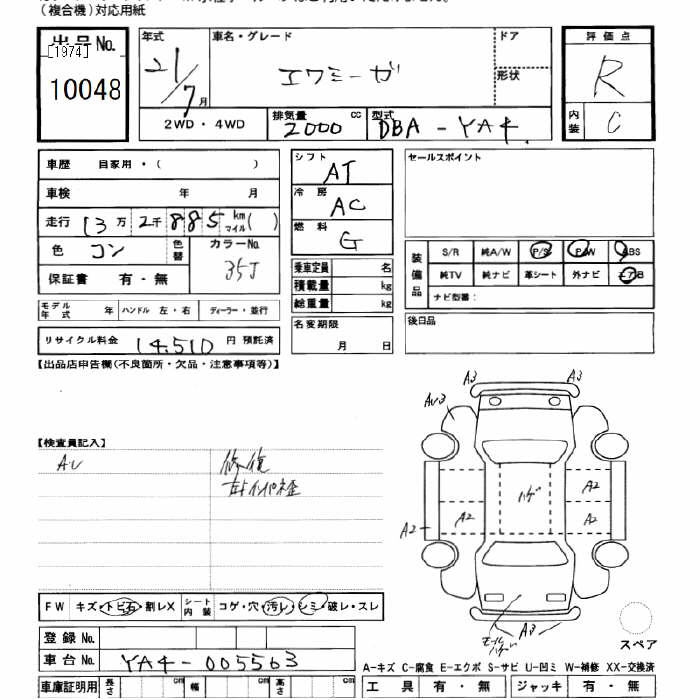 （複合機）対応用紙
出品No.
[1974]
10048
年式 21/7月
車名・グレード エクシーガ
ドア
形状
2WD・4WD
排気量 2000 cc
型式 DBA-YA4
評価点 R
内装 C
車歴 自家用・（ ）
車検 年 月
走行 13万2千885 km マイル( )
色 コン 色替 カラーNo. 35J
保証書 有・無
シフト AT
冷房 AC
燃料 G
乗車定員 名
積載量 kg
総重量 kg
セールスポイント
装備品 S/R 純A/W P/S P/W ABS
純TV 純ナビ 革シート 外ナビ エアB
ナビ型番：
モデル年式 年 ハンドル 左・右 ディーラー・並行
名変期限 月 日
後日品
リサイクル料金 14,510 円 預託済
【出品店申告欄(不良箇所・欠品・注意事項等)】
【検査員記入】
AU 修復
A3 A3
AU3
ハゲ
A2
A2 A2
A2
A3
ハゲ
スペア
FW キズ・トビ石・割レX シート内装 コゲ・穴・汚レ・シミ・破レ・スレ
登録No.
車台No. YA4-005563
A-キズ C-腐食 E-エクボ S-サビ U-凹ミ W-補修 XX-交換済
車庫証明用 長さ cm 幅 cm 高さ cm
工具 有・無 ジャッキ 有・無